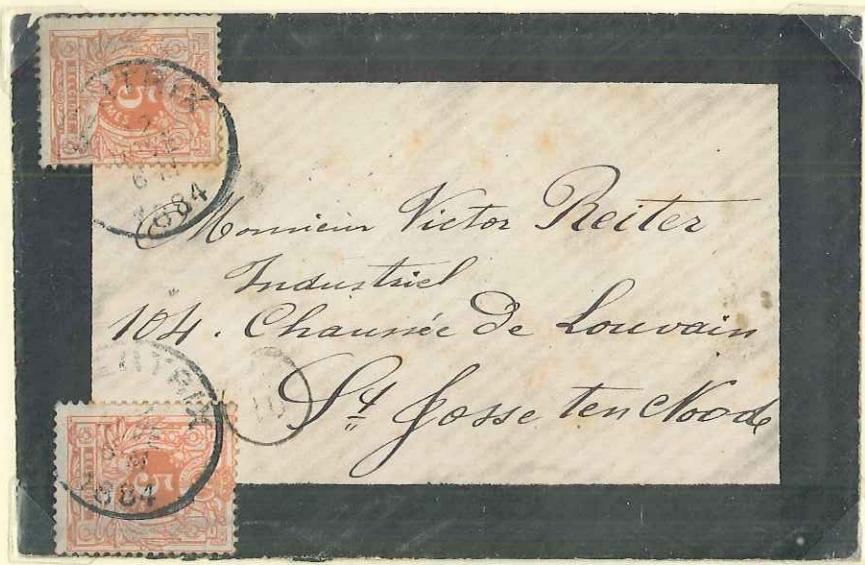 Monsieur Victor Reiter
Industriel
104. Chaussée de Louvain
St Josse ten Noode
5
1884
10
5
1884